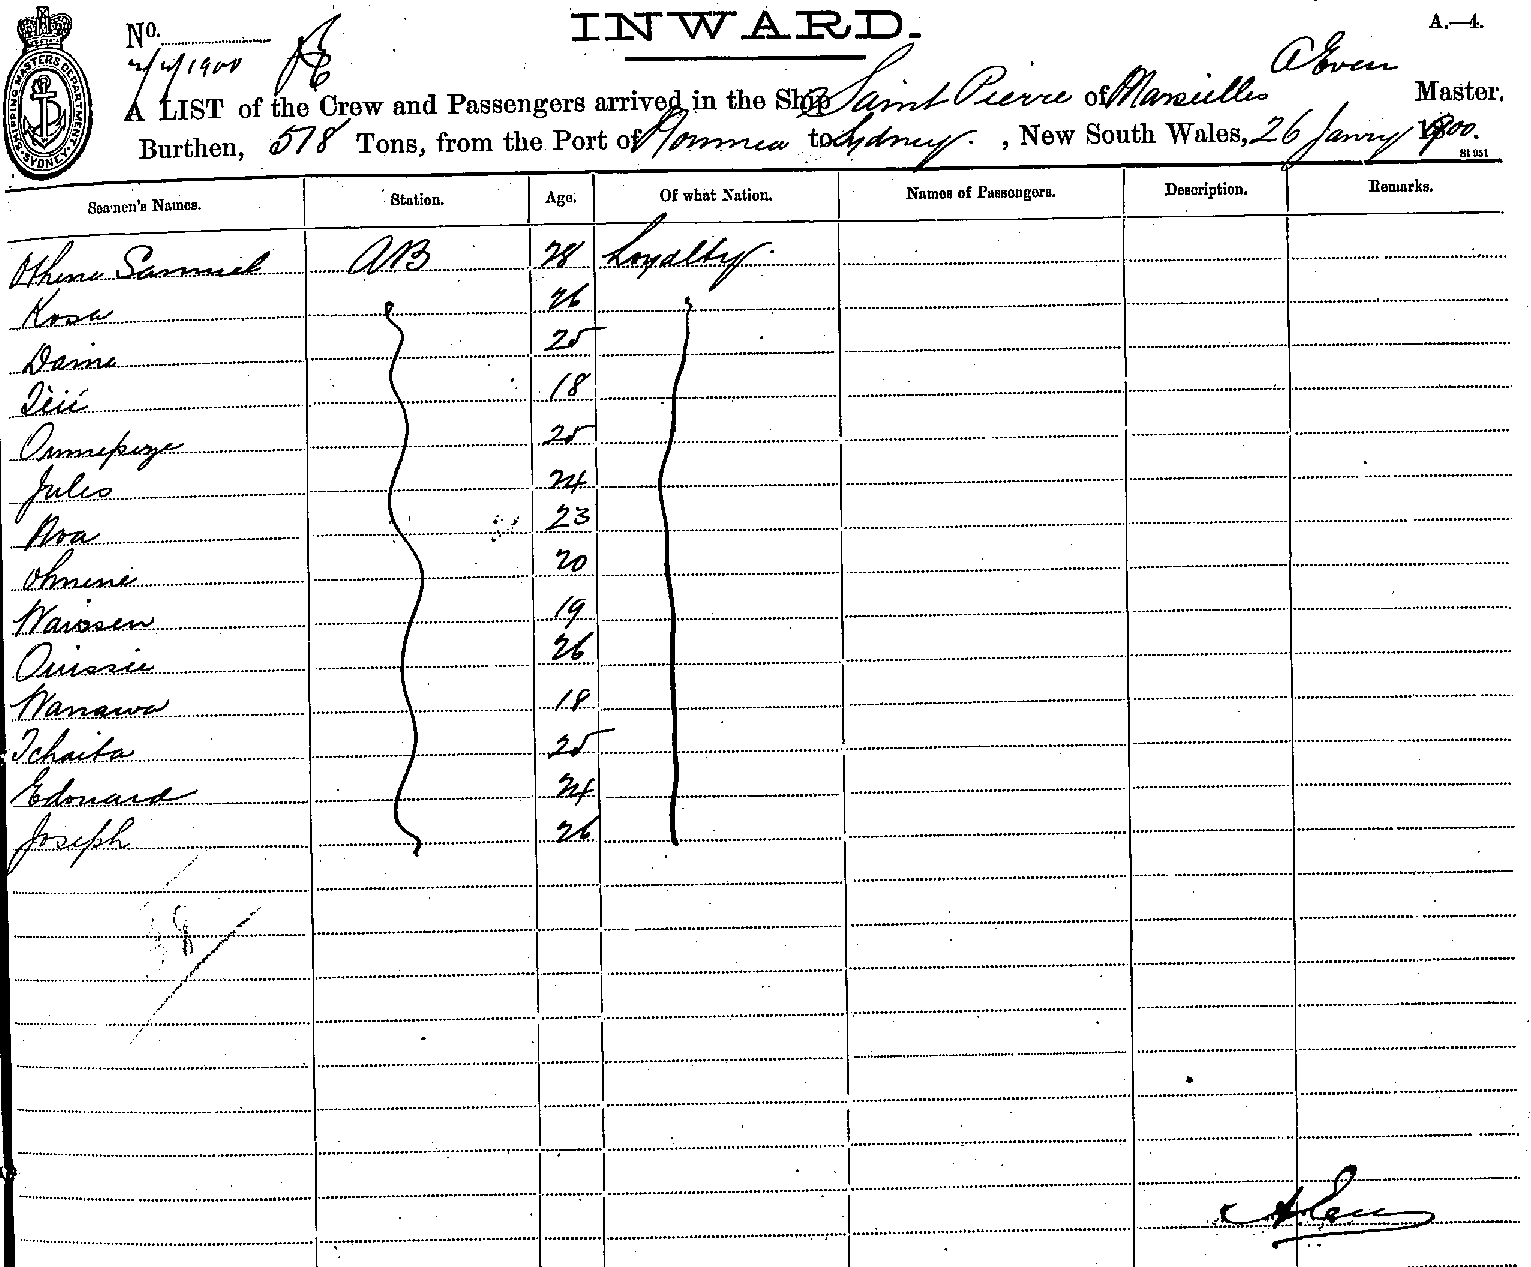 INWARD.
A.—4.
No.
2/2/1900
A Even
A LIST of the Crew and Passengers arrived in the Ship Saint Pierre of Marseilles Master,
Burthen, 578 Tons, from the Port of Noumea to Sydney. , New South Wales, 26 Janry 1900.
81951
SHIPPING MASTERS DEPARTMENT SYDNEY
Seamen's Names. Station. Age. Of what Nation. Names of Passengers. Description. Remarks.
Othene Samuel AB 28 Loyalty
Kosa 26
Daine 25
18
25
Jules 24
Noa 23
Ohnene 20
Waissen 19
Ouissie 26
Wanawa 18
Tchaiba 25
Edouard 24
Joseph 26
A Even